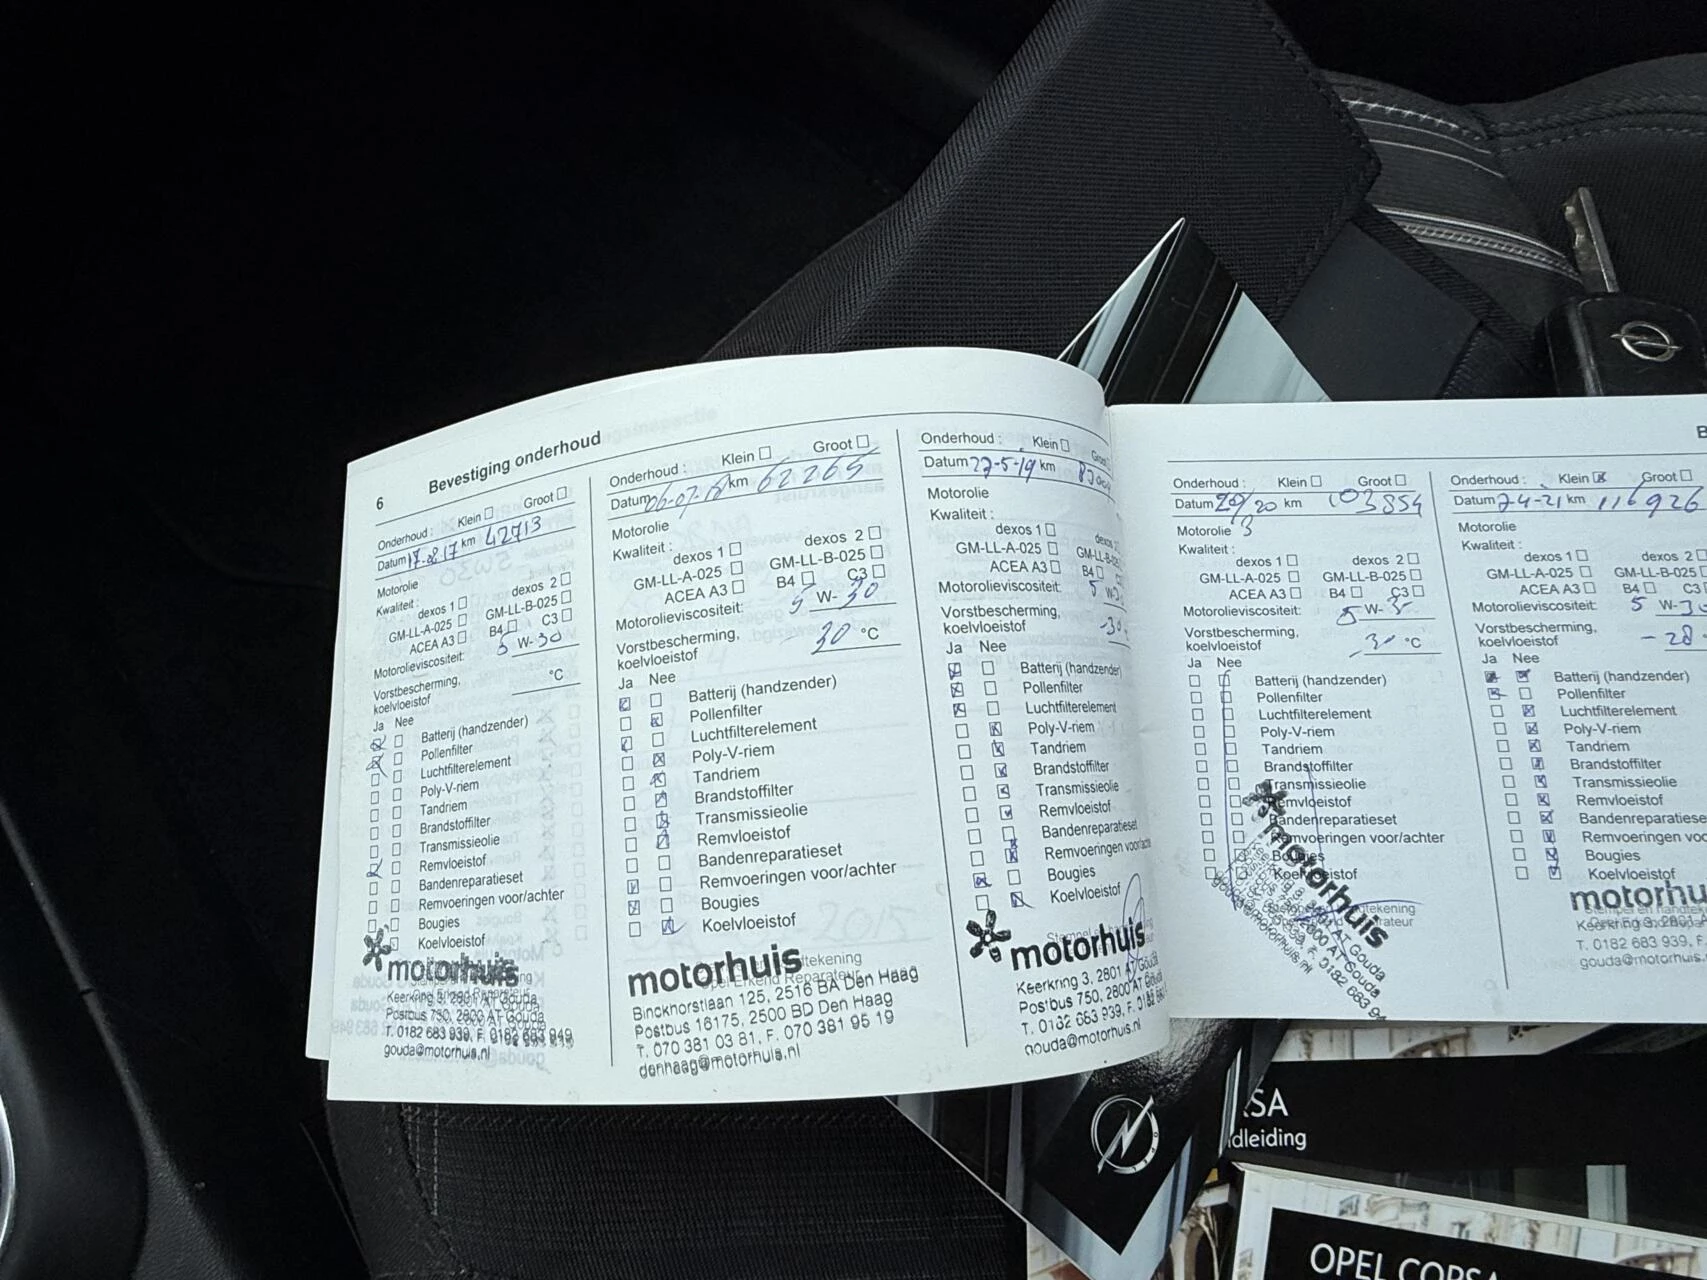 6 Bevestiging onderhoud
Onderhoud : Klein Groot
Datum 17-08-17 km 42713
Motorolie
Kwaliteit :
dexos 1 dexos 2
GM-LL-A-025 GM-LL-B-025
ACEA A3 B4 C3
Motorolieviscositeit: 5 W-30
Vorstbescherming,
koelvloeistof °C
Ja Nee
Batterij (handzender)
Pollenfilter
Luchtfilterelement
Poly-V-riem
Tandriem
Brandstoffilter
Transmissieolie
Remvloeistof
Bandenreparatieset
Remvoeringen voor/achter
Bougies
Koelvloeistof
motorhuis
Keerkring 3, 2801 AT Gouda
Postbus 750, 2800 AT Gouda
T. 0182 683 939, F. 0182 683 949
gouda@motorhuis.nl
Onderhoud : Klein Groot
Datum 06-07-18 km 62265
Motorolie
Kwaliteit :
dexos 1 dexos 2
GM-LL-A-025 GM-LL-B-025
ACEA A3 B4 C3
Motorolieviscositeit: 5 W-30
Vorstbescherming,
koelvloeistof 30 °C
Ja Nee
Batterij (handzender)
Pollenfilter
Luchtfilterelement
Poly-V-riem
Tandriem
Brandstoffilter
Transmissieolie
Remvloeistof
Bandenreparatieset
Remvoeringen voor/achter
Bougies
Koelvloeistof
motorhuis
Binckhorstlaan 125, 2516 BA Den Haag
Postbus 16175, 2500 BD Den Haag
T. 070 381 03 81, F. 070 381 95 19
denhaag@motorhuis.nl
Onderhoud : Klein
Datum 27-5-19 km
Motorolie
Kwaliteit :
dexos 1
GM-LL-A-025
ACEA A3 B4
Motorolieviscositeit: 5
Vorstbescherming,
koelvloeistof
Ja Nee
Batterij (handzender)
Pollenfilter
Luchtfilterelement
Poly-V-riem
Tandriem
Brandstoffilter
Transmissieolie
Remvloeistof
Bandenreparatieset
Remvoeringen
Bougies
Koelvloeistof
motorhuis
Keerkring 3, 2801 AT Gouda
Postbus 750, 2800 AT Gouda
T. 0182 683 939, F. 0182
gouda@motorhuis.nl
Onderhoud : Klein Groot
Datum km 103854
Motorolie
Kwaliteit :
dexos 1 dexos 2
GM-LL-A-025 GM-LL-B-025
ACEA A3 B4 C3
Motorolieviscositeit: 5 W-
Vorstbescherming,
koelvloeistof °C
Ja Nee
Batterij (handzender)
Pollenfilter
Luchtfilterelement
Poly-V-riem
Tandriem
Brandstoffilter
Transmissieolie
Remvloeistof
Bandenreparatieset
Remvoeringen voor/achter
Bougies
Koelvloeistof
motorhuis
Onderhoud : Klein Groot
Datum 7-4-21 km 116926
Motorolie
Kwaliteit :
dexos 1 dexos 2
GM-LL-A-025 GM-LL-B-025
ACEA A3 B4 C3
Motorolieviscositeit: 5 W-30
Vorstbescherming,
koelvloeistof -28
Ja Nee
Batterij (handzender)
Pollenfilter
Luchtfilterelement
Poly-V-riem
Tandriem
Brandstoffilter
Transmissieolie
Remvloeistof
Bandenreparatiese
Remvoeringen vo
Bougies
Koelvloeistof
motorhu
T. 0182 683 939, F.
gouda@motorhuis
OPEL
RSA
dleiding
OPEL CORSA